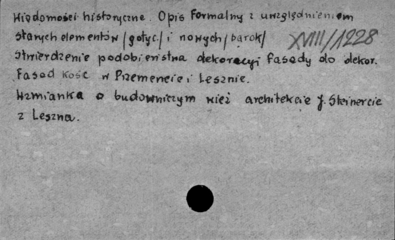 Wiadomości historyczne. Opis formalny z uwzględnieniem
starych elementów /gotyc./ i nowych /barok/
XVIII/1228
Stwierdzenie podobieństwa dekoracyi fasady do dekor.
fasad kość w Przemencie i Lesznie.
Wzmianka o budowniczym wież architekcie J. Steinercie
z Leszna.